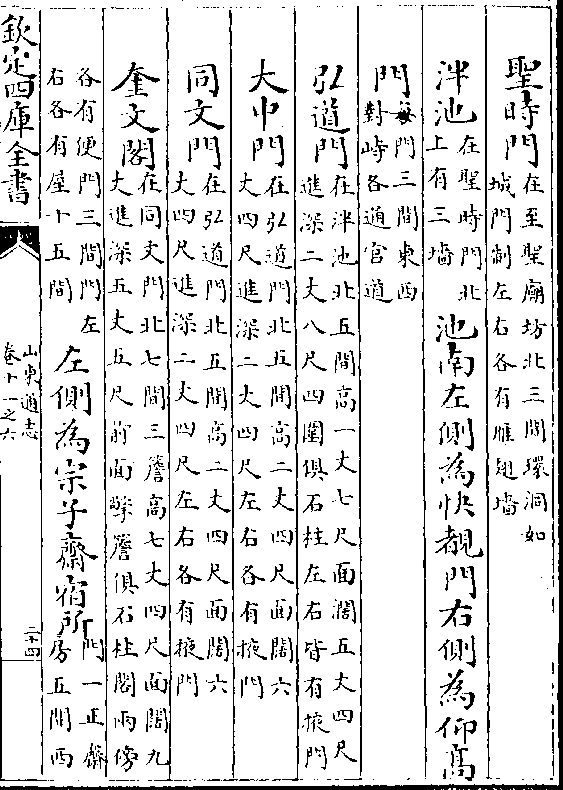 聖時門在至聖廟坊北三間環洞如
城門制左右各有雁翅墻
泮池在聖時門北
上有三墻
池南左側為快覩門右側為仰髙
門每門三間東西
對峙各通官道
弘道門在泮池北五間高一丈七尺面闊五丈四尺
進深二丈八尺四圍俱石柱左右皆有掖門
大中門在弘道門北五間高二丈四尺面闊六
丈四尺進深二丈四尺左右各有掖門
同文門在弘道門北五間高二丈四尺面闊六
丈四尺進深二丈四尺左右各有掖門
奎文閣在同文門北七間三簷高七丈四尺面闊九
丈進深五丈五尺前面擎簷俱石柱閣兩傍
各有便門三間門左
右各有屋十五間
左側為宗子齋宿所門一正齋
房五間西
欽定四庫全書
山東通志
卷十一之六
二十四